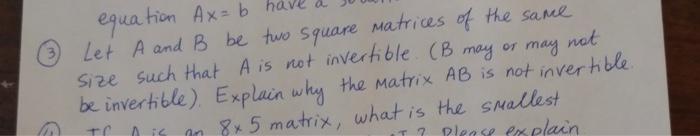 equation Ax = b have a
③ Let A and B be two square matrices of the same
size such that A is not invertible. (B may or may not
be invertible). Explain why the matrix AB is not invertible.
If A is an 8x5 matrix, what is the smallest
? Please explain